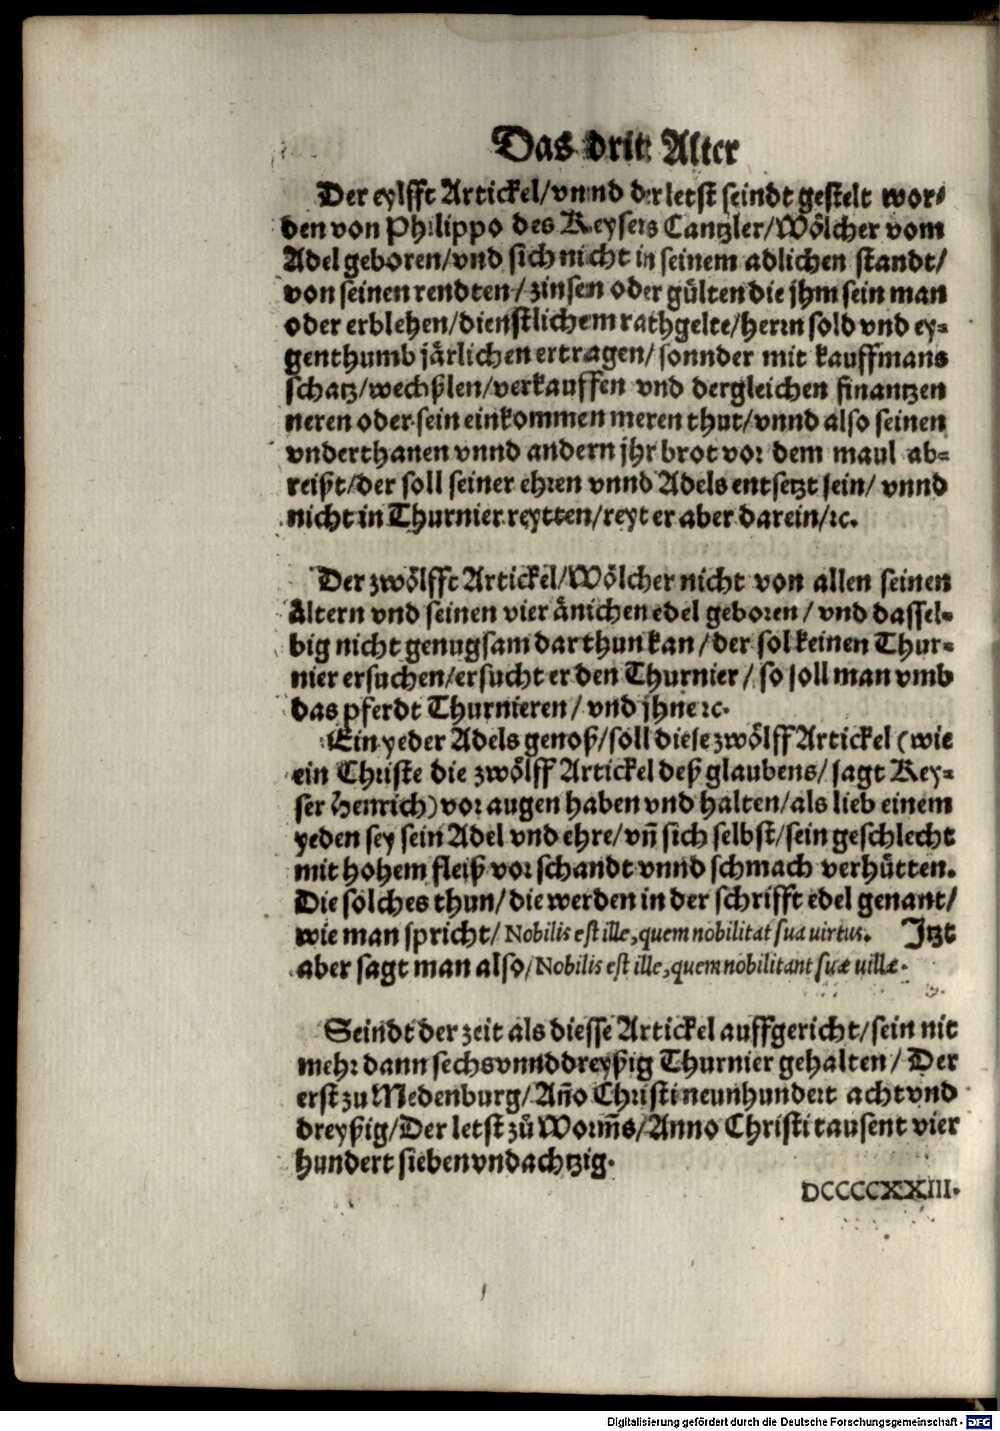 Das drit Alter
Der eylfft Artickel/vnnd der letst seindt gestelt wor-
den von Philippo des Keysers Cantzler/Wölcher vom
Adel geboren/vnd sich nicht in seinem adlichen standt/
von seinen rendten/zinsen oder gülten die jhm sein man
oder erblehen/dienstlichem rathgelte/herrn sold vnd ey=
genthumb järlichen ertragen/sonnder mit kauffmans
schatz/wechßlen/verkauffen vnd dergleichen finantzen
neren oder sein einkommen meren thut/vnnd also seinen
vnderthanen vnnd andern jhr brot vor dem maul ab=
reißt/der soll seiner ehren vnnd Adels entsetzt sein/ vnnd
nicht in Thurnier reytten/reyt er aber darein/ꝛc.
Der zwölfft Artickel/Wölcher nicht von allen seinen
ältern vnd seinen vier änichen edel geboren/ vnd dassel-
big nicht genugsam darthun kan/der sol keinen Thur-
nier ersuchen/ersucht er den Thurnier/ so soll man vmb
das pferdt Thurnieren/ vnd jhne ꝛc.
Ein yeder Adels genoß/soll diese zwölff Artickel (wie
ein Christe die zwölff Artickel deß glaubens/sagt Key-
ser Henrich) vor augen haben vnd halten/als lieb einem
yeden sey sein Adel vnd ehre/vñ sich selbst/sein geschlecht
mit hohem fleiß vor schandt vnnd schmach verhütten.
Die solches thun/die werden in der schrifft edel genant/
wie man spricht/ Nobilis est ille, quem nobilitat sua uirtus. Jtzt
aber sagt man also/Nobilis est ille, quem nobilitant suæ uillæ.
Seindt der zeit als diesse Artickel auffgericht/sein nit
mehr dann sechsvnnddreyßig Thurnier gehalten/ Der
erst zu Medenburg/Año Christi neunhundert acht vnd
dreyßig/Der letst zů Worm̃s/Anno Christi tausent vier
hundert siebenvndachtzig.
DCCCCXXIII.
Digitalisierung gefördert durch die Deutsche Forschungsgemeinschaft - DFG